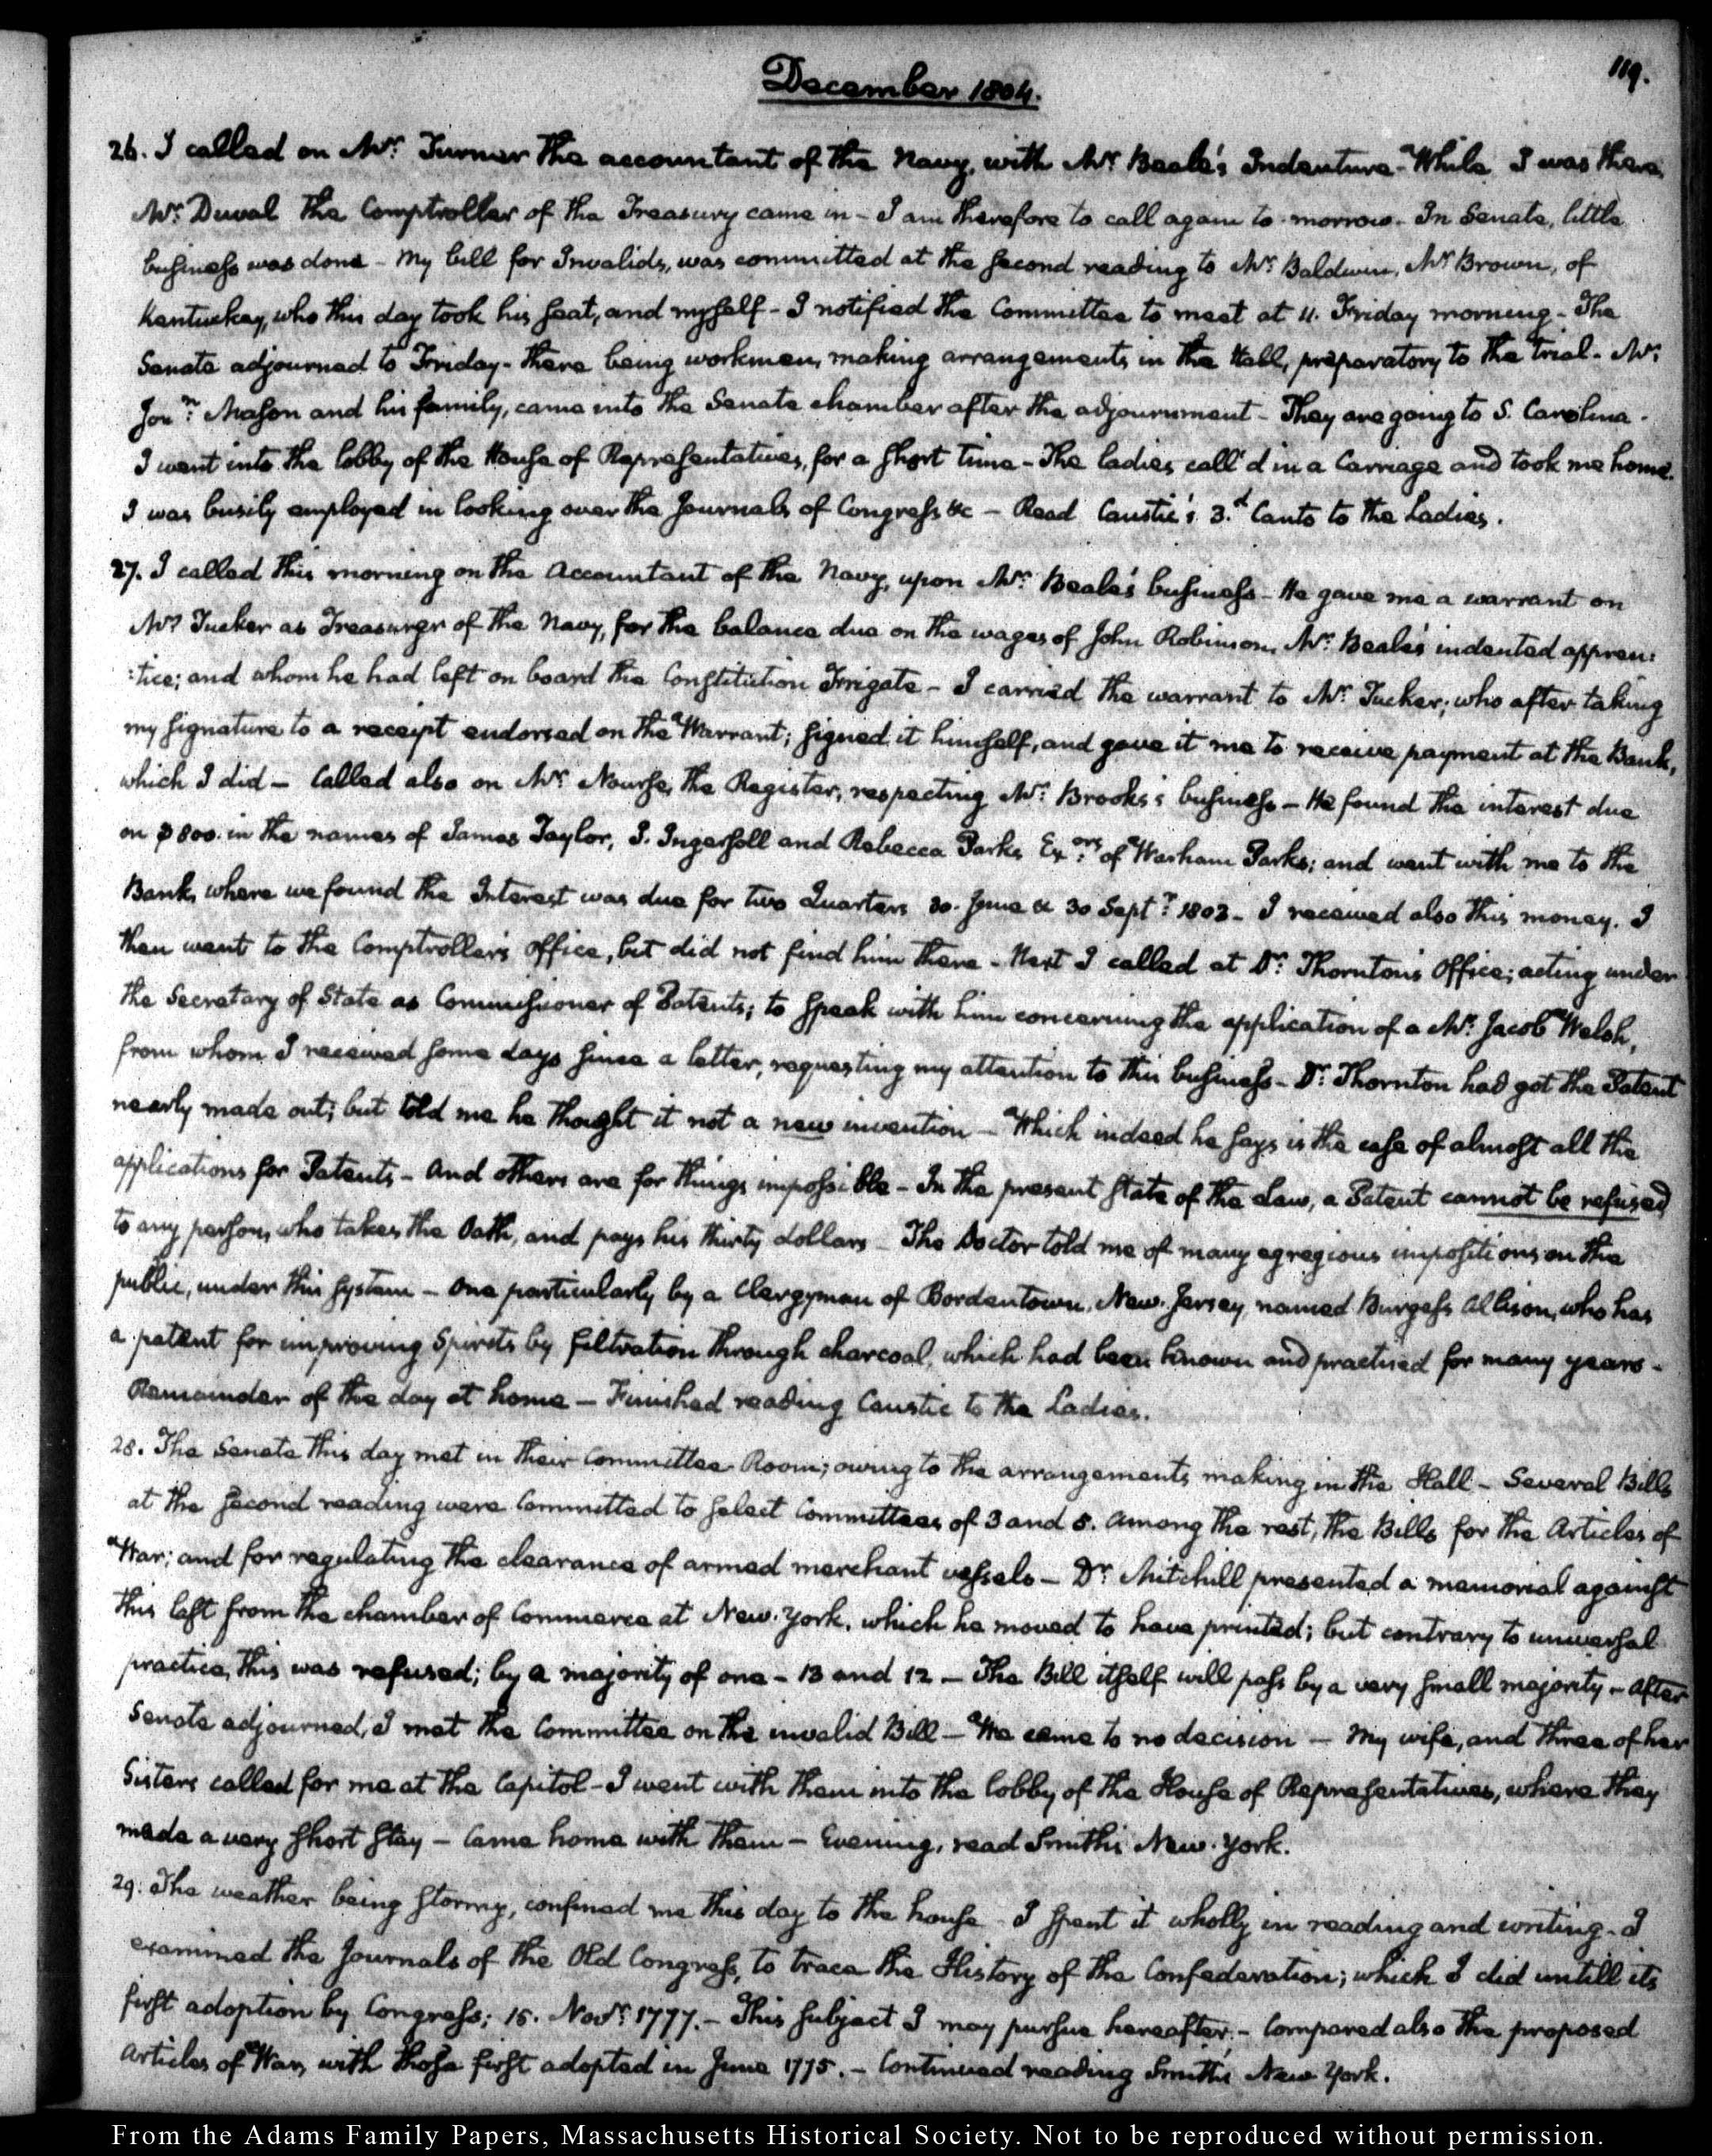 119.
December 1804.
26. I called on Mr. Turner the accountant of the Navy, with Mr. Beale's Indenture - While I was there,
Mr. Duval the Comptroller of the Treasury came in - I am therefore to call again to-morrow - In Senate, little
business was done - My bill for Invalids, was committed at the second reading to Mr. Baldwin, Mr Brown, of
Kentuckey, who this day took his seat, and myself - I notified the Committee to meet at 11. Friday morning - The
Senate adjourned to Friday - there being workmen, making arrangements in the Hall, preparatory to the trial - Mr.
Jonn. Mason and his family, came into the Senate chamber after the adjournment - They are going to S. Carolina -
I went into the lobby of the House of Representatives, for a short time - The ladies call'd in a Carriage and took me home.
I was busily employed in looking over the Journals of Congress &c - Read Caustic's 3.d Canto to the Ladies.
27. I called this morning on the Accountant of the Navy, upon Mr. Beale's business - He gave me a warrant on
Mr Tucker as Treasurer of the Navy, for the balance due on the wages of John Robinson, Mr. Beale's indented appren:
:tice; and whom he had left on board the Constitution Frigate - I carried the warrant to Mr. Tucker; who after taking
my signature to a receipt endorsed on the Warrant; signed it himself, and gave it me to receive payment at the Bank,
which I did - Called also on Mr. Nourse, the Register, respecting Mr. Brooks's business - He found the interest due
on $800. in the names of James Taylor, J. Ingersoll and Rebecca Parks, Exors. of Warham Parks; and went with me to the
Bank, where we found the Interest was due for two Quarters 30. June & 30 Septr. 1803 - I received also this money. I
then went to the Comptroller's Office, but did not find him there - Next I called at Dr. Thornton's Office; acting under
the Secretary of State as Commissioner of Patents; to speak with him concerning the application of a Mr. Jacob Welsh,
from whom I received some days since a letter, requesting my attention to this business - Dr. Thornton had got the Patent
nearly made out; but told me he thought it not a new invention - Which indeed he says is the case of almost all the
applications for Patents - And others are for things impossible - In the present state of the Law, a Patent cannot be refused
to any person, who takes the Oath, and pays his thirty dollars - The Doctor told me of many egregious impositions on the
public, under this system - One particularly by a Clergyman of Bordentown, New-Jersey, named Burgess Allison, who has
a patent for improving Spirits by filtration through charcoal, which had been known and practised for many years -
Remainder of the day at home - Finished reading Caustic to the Ladies.
28. The Senate this day met in their Committee Room; owing to the arrangements making in the Hall - Several Bills
at the second reading were Committed to select Committees of 3 and 5. Among the rest, the Bills for the Articles of
War; and for regulating the clearance of armed merchant vessels - Dr. Mitchill presented a memorial against
this last from the chamber of Commerce at New-York, which he moved to have printed; but contrary to universal
practice, this was refused; by a majority of one - 13 and 12 - The Bill itself will pass by a very small majority - After
Senate adjourned, I met the Committee on the invalid Bill - We came to no decision - My wife, and three of her
Sisters called for me at the Capitol - I went with them into the lobby of the House of Representatives, where they
made a very short stay - Came home with them - Evening, read Smith's New-York.
29. The weather being stormy, confined me this day to the house - I spent it wholly in reading and writing - I
examined the Journals of the Old Congress, to trace the History of the Confederation; which I did untill its
first adoption by Congress; 15. Novr. 1777. - This subject I may pursue hereafter. - Compared also the proposed
Articles of War, with those first adopted in June 1775. - Continued reading Smith's New York.
From the Adams Family Papers, Massachusetts Historical Society. Not to be reproduced without permission.